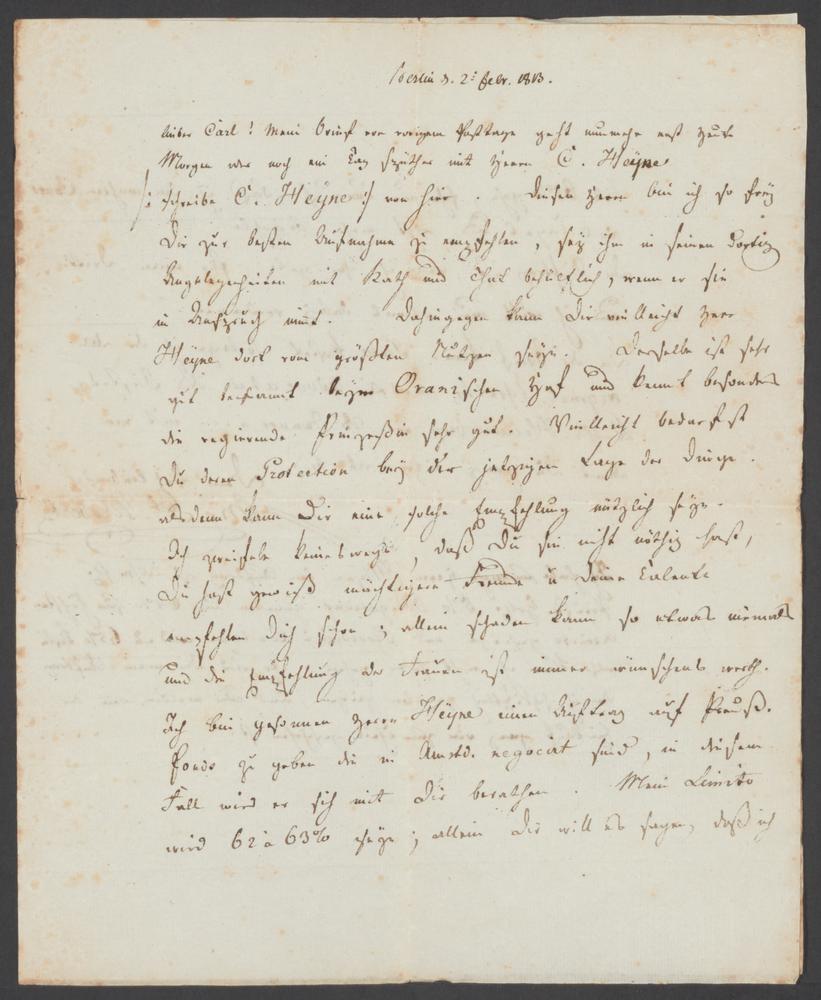 Berlin d. 2t Febr. 1813.
Lieber Carl! Mein Brief vom vorigen Posttage geht nunmehr erst heute
Morgen oder noch ein Tag später mit Herrn C. Heyne
/: schreibe C. Heyne :/ von hier. Diesen Herrn bin ich so frey
Dir zur besten Aufnahme zu empfehlen, sey ihm in seinen dortig
Angelegenheiten mit Rath und That behülflich, wenn er sie
in Anspruch nimt. Dahingegen kann Dir vielleicht Herr
Heyne dort vom größten Nutzen seyn. Derselbe ist sehr
gut bekannt beym Oranischen Hof und kennt besonders
die regierende Prinzeßin sehr gut. Vielleicht bedarfst
Du deren Protection bey der jetzigen Lage der Dinge.
alsdenn kann Dir eine solche Empfehlung nützlich seyn.
Ich zweifele keineswegs, daß Du sie nicht nöthig hast,
Du hast gewiß mächtigere Freunde u Deine Talente
empfehlen Dich schon; allein schaden kann so etwas niemals
und die Empfehlung der Frauen ist immer wünschens werth.
Ich bin gesonnen Herrn Heyne einen Auftrag auf Preuß.
Fonds zu geben die in Amstd. negocirt sind, in diesem
Fall wird er sich mit Dir berathen. Mein Limito
wird 62 à 63% seyn; allein Dir will es sagen, daß ich